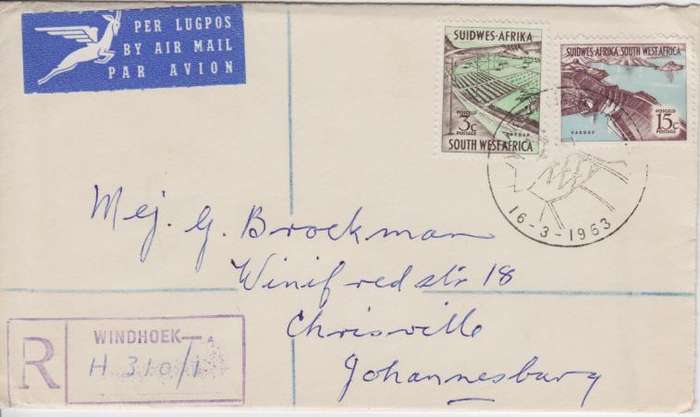 PER LUGPOS
BY AIR MAIL
PAR AVION
SUIDWES-AFRIKA
3c
POSSEEL
POSTAGE
HARDAP
SOUTH WEST AFRICA
SUIDWES-AFRIKA SOUTH WEST AFRICA
POSSEEL
15c
POSTAGE
HARDAP
16-3-1963
Mej. G. Brockman
Winifredstr 18
Chrisville
Johannesburg
R
WINDHOEK
H 310/1